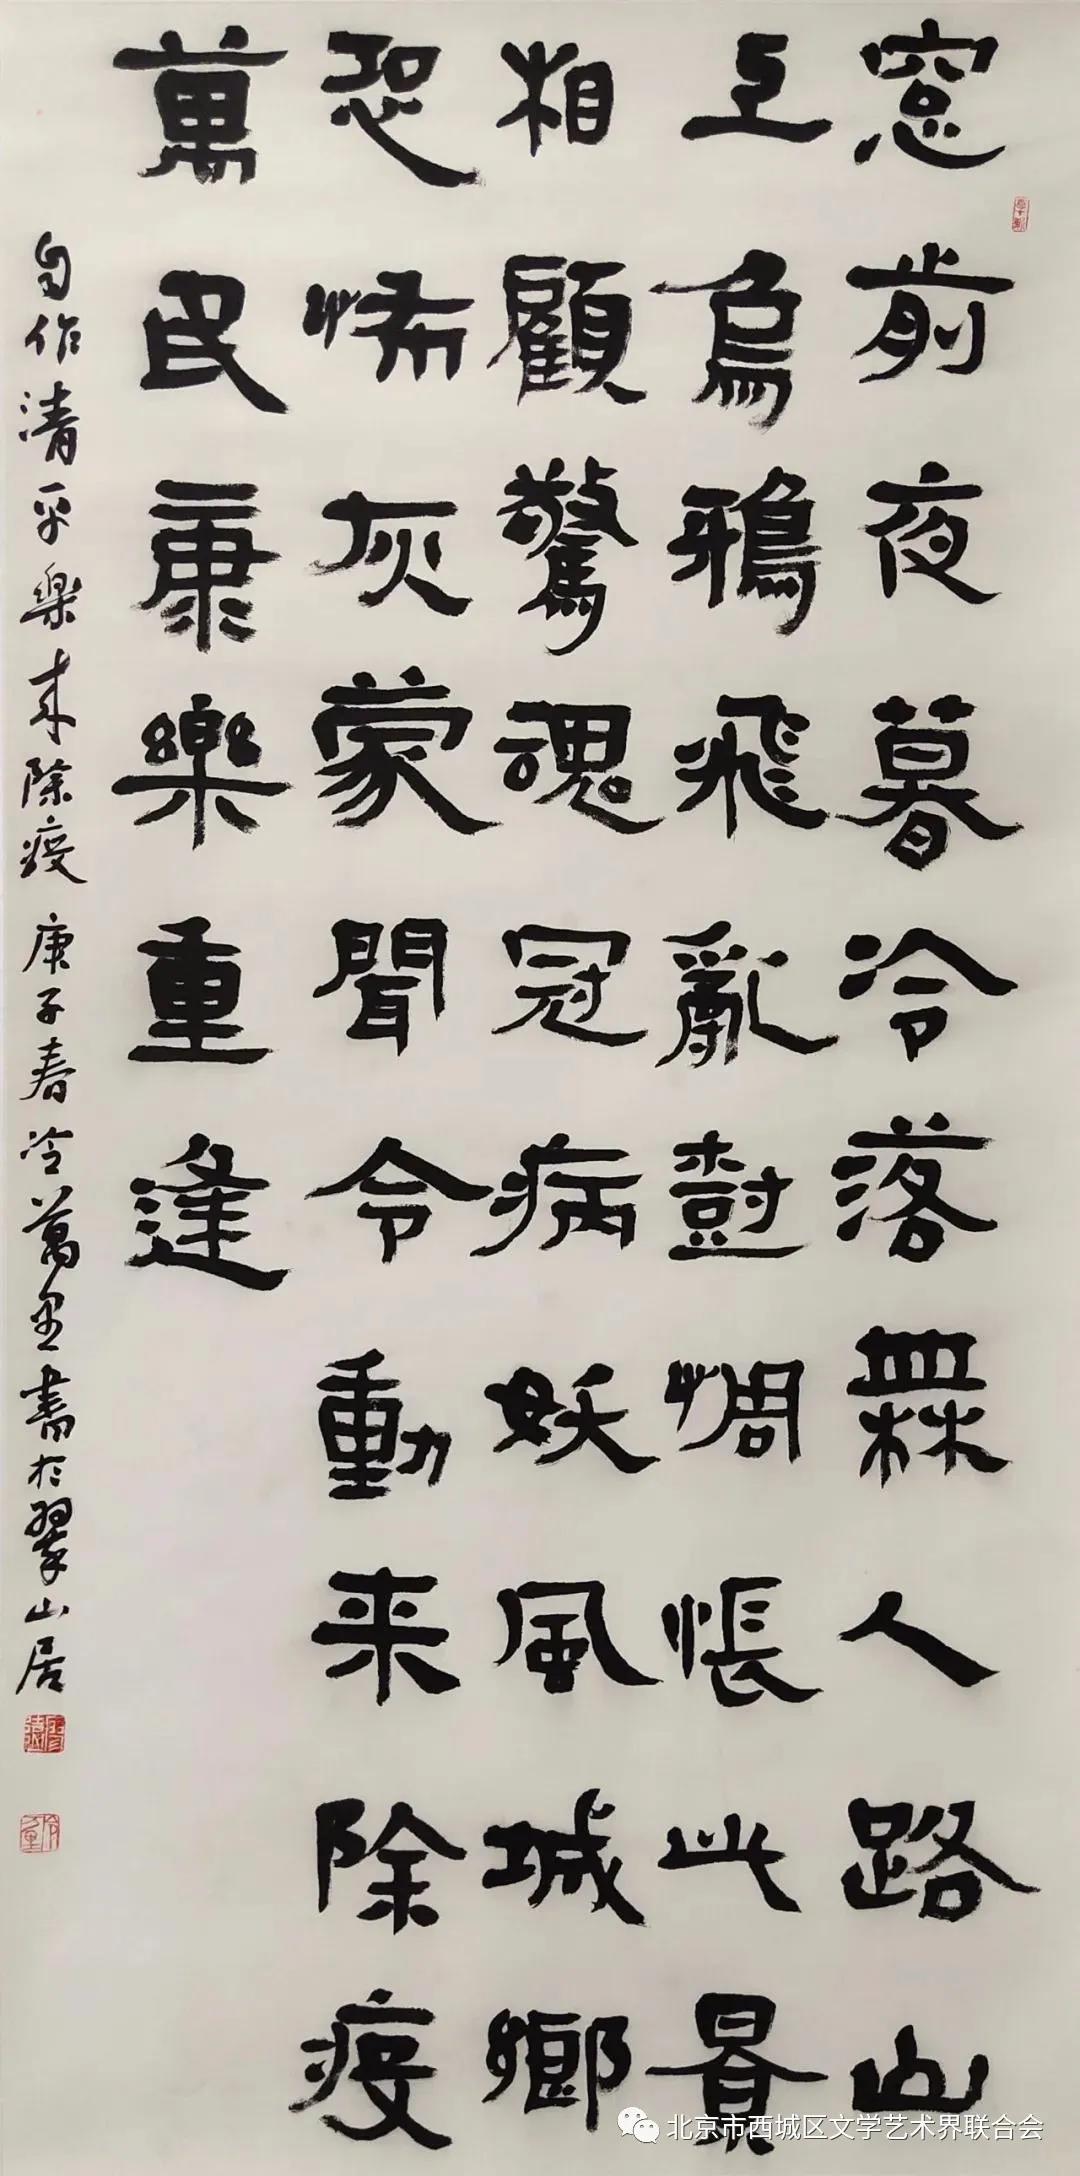 窓前夜暮冷落無人路山
上烏鴉飛亂樹惆悵此景
相顧驚魂冠病妖風城鄉
恐怖灰蒙聞令動来除疫
萬民康樂重逢
自作清平樂来除疫 庚子春冷萬里書於翠山居
北京市西城区文学艺术界联合会